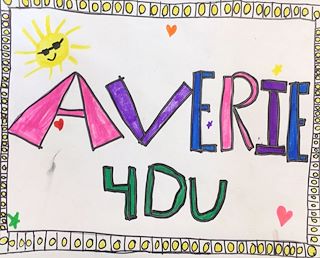 AVERIE
4DU